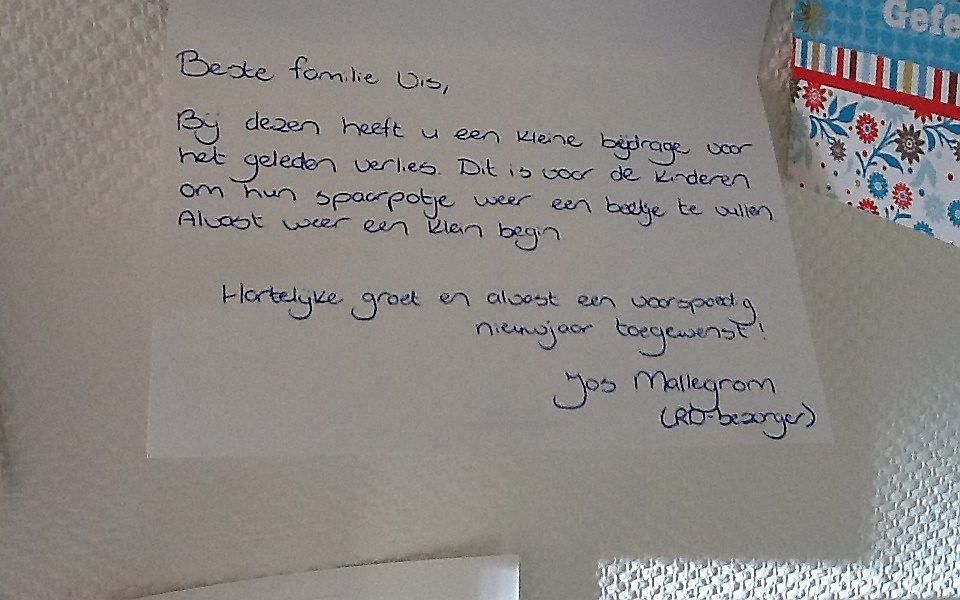 Gefe
Beste familie Vis,
Bij dezen heeft u een kleine bijdrage voor
het geleden verlies. Dit is voor de kinderen
om hun spaarpotje weer een beetje te vullen
Alvast weer een klein begin
Hartelijke groet en alvast een voorspoedig
nieuwjaar toegewenst!
Jos Mallegrom
(RD-bezorger)